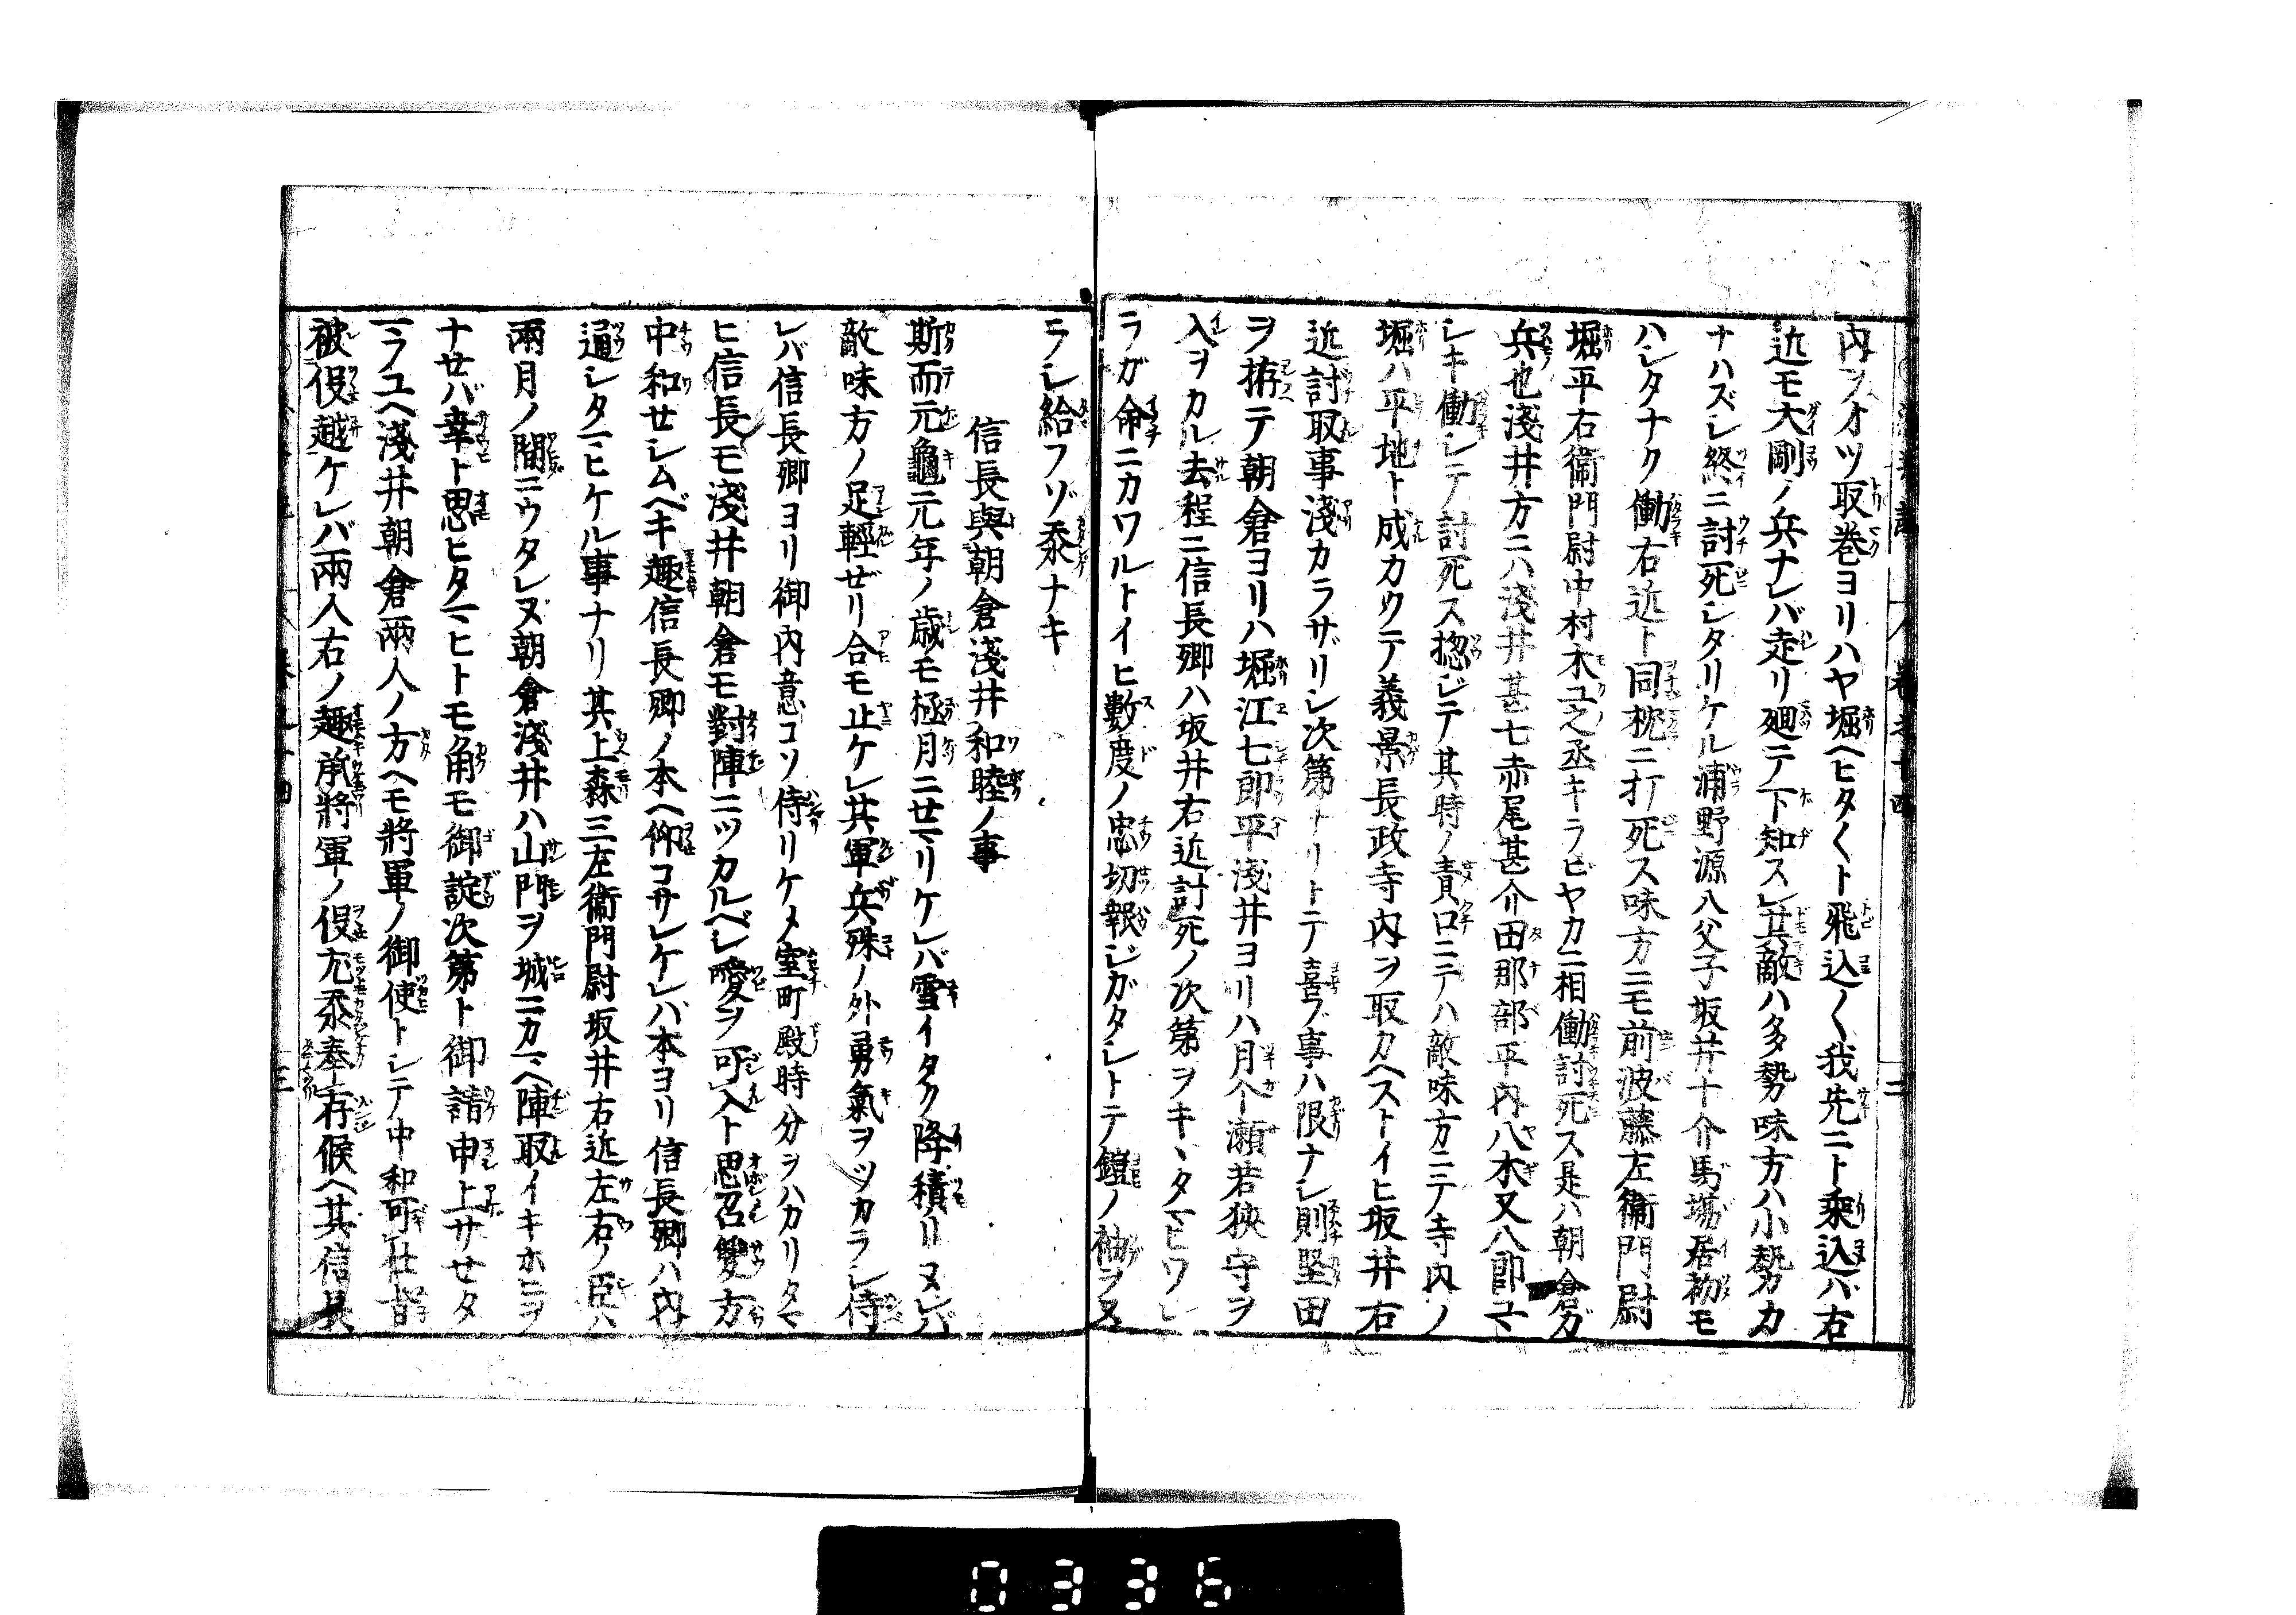 内ヲオツ取巻ヨリハヤ堀ヘヒタ〱ト飛込〱我先ニト乘込バ右
近モ大剛ノ兵ナレバ走リ廻テ下知スレ共敵ハ多勢味方ハ小勢カカ
ナハズレ終ニ討死シタリケル浦野源八父子坂井十介馬塲居初モ
ハレタナク働右近ト同枕ニ打死ス味方ニモ前波藤左衞門尉
堀平右衞門尉中村木工之丞キラビヤカニ相働討死ス是ハ朝倉ガ
兵也淺井方ニハ淺井甚七赤尾甚介田那部平内八木又八郎コマ
レキ働シテ討死ス惣ジテ其時ノ責口ニテハ敵味方ニテ寺内ノ
堀ハ平地ト成カクテ義景長政寺内ヲ取カヘストイヒ坂井右
近討取事淺カラザリシ次第トリトテ喜ブ事ハ限ナシ則堅田
ヲ拵テ朝倉ヨリハ堀江七郎平淺井ヨリハ月个瀬若狹守ヲ
入ヲカル去程ニ信長卿ハ坂井右近討死ノ次第ヲキヽタマヒワレ
ラガ命ニカワルトイヒ數度ノ忠切報ジガタシトテ鎧ノ袖ヲヌ
ラシ給フゾ忝ナキ
信長與朝倉淺井和睦ノ事
斯而元龜元年ノ歳モ極月ニせマリケレバ雪イタク降積リヌレバ
敵味方ノ足輕ぜリ合モ止ケレ共軍兵殊ノ外勇氣ヲツカラシ侍
レバ信長卿ヨリ御内意コソ侍リケメ室町殿時分ヲハカリタマ
ヒ信長モ淺井朝倉モ對陣ニツカルベシ愛ヲ可入ト思召雙方
中和せシムベキ趣信長卿ノ本ヘ仰コサレケレバ本ヨリ信長卿ハ内
通シタマヒケル事ナリ其上森三左衞門尉坂井右近左右ノ臣ハ
兩月ノ間ニウタレヌ朝倉淺井ハ山門ヲ城ニカマヘ陣取イキホヒヲ
ナせバ幸ト思ヒタマヒトモ角モ御諚次第ト御請申上サせタ
マフユヘ淺井朝倉兩人ノ方ヘモ將軍ノ御使トシテ中和可仕旨
被仰越ケレバ兩人右ノ趣承將軍ノ仰尤忝奉存候ヘ共信長
0336